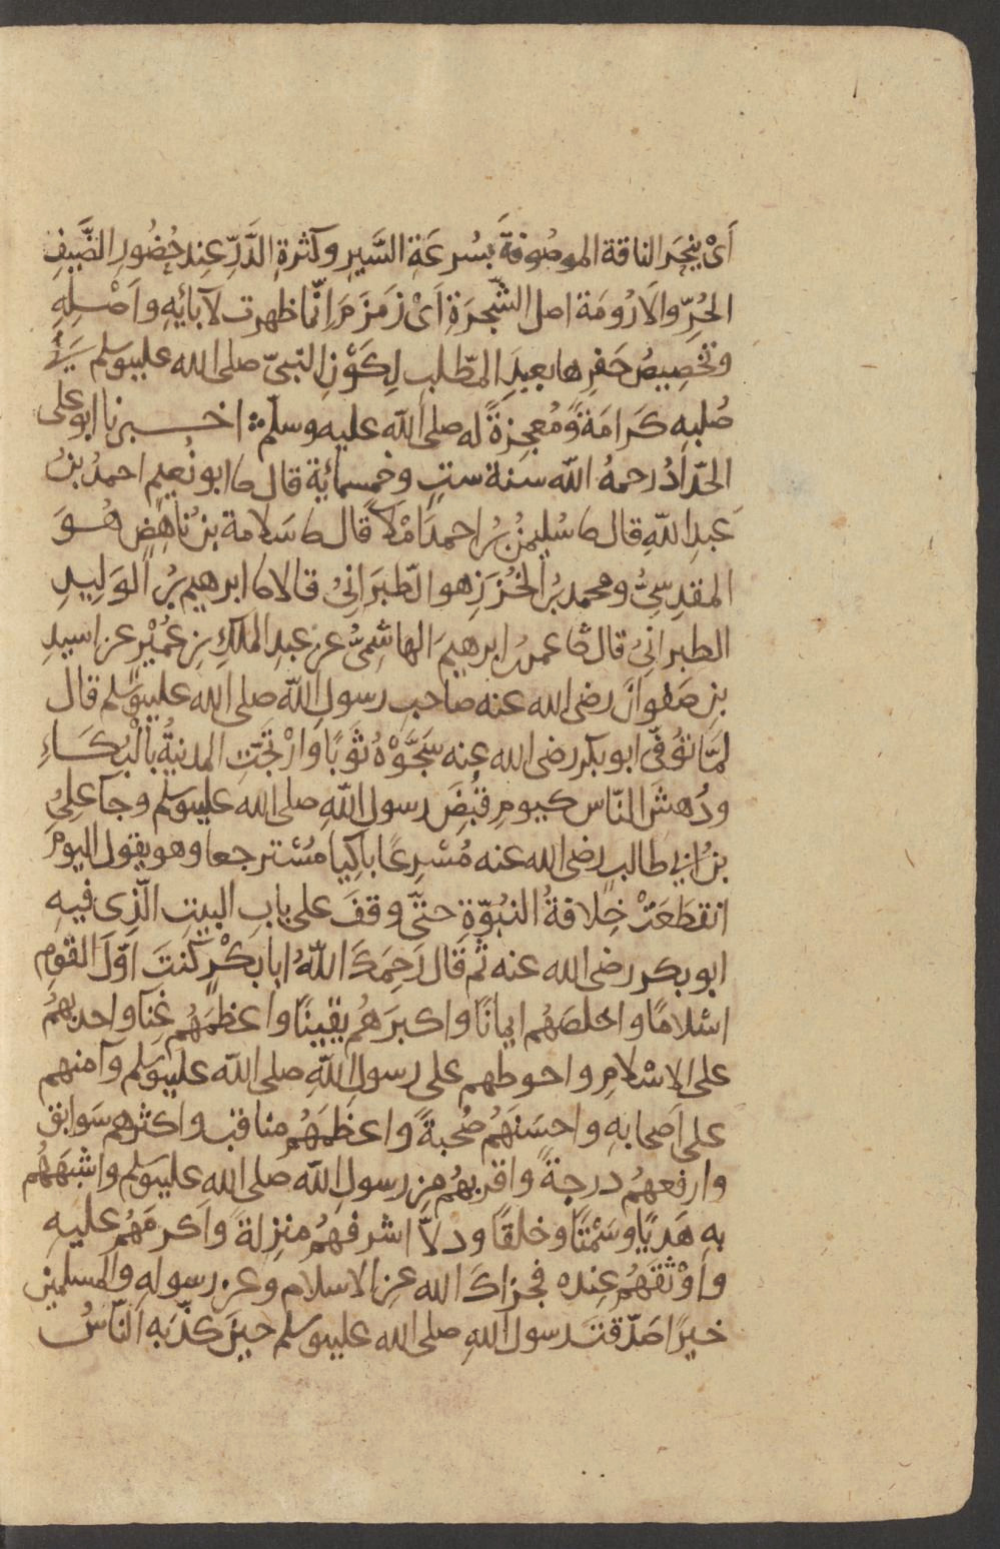 أَىْ ينحَر الناقة الموصُوفةَ بسُرعَةِ السَّيرِ وكثرةِ الدَّرِّ عِند حُضُورِ الضَّيفِ
الحُرِّ والأَرُومَة اصل الشّجرَةِ أَىْ زَمزَمَ إنّما ظهرت لآبائِهِ وأَصْلِهِ
وتخصِيصُ حَفرِها بعبدِ المطّلب لِكَوْنِ النبىّ صلى الله عليه وسلم مِنْ
صُلبه كَرامَةً ومُعجِزةً له صلى الله عليه وسلّم ؞ اخـــبرنا ابو على
الحدّادُ رحمهُ الله سنة ستٍ وخمسمائية قال ثا ابو نُعيم احمدُ بنُ
عبدِ اللهِ قال ثا سُليمنُ بنُ احمدَ امْلآً قال ثا سَلامة بنُ ناهِضٍ هُــوَ
المقدِسِىُّ ومحمد بنُ الخُزَزِ هو الطّبَرَانِىُ قالا ثا ابرهيم بنُ الوَلِيدِ
الطبرانِىُ قال ثا عمر بن ابرهيمَ الهاشِمىُّ عن عبدِ الملكِ بنِ عُمَيْرٍ عن اسيدِ
بنِ صَفوانَ رضى الله عنه صاحبِ رسولِ الله صلى الله عليه وسلم قال
لمّا توُفّى ابو بكر رضى الله عنه سَجَّوْهُ ثَوبًا وارْتَجَّتِ المدينةُ بالْبُكَــاءِ
ودُهشَ النّاس كيومِ قُبِضَ رسولُ اللهِ صلى الله عليه وسلم وجآ علِىُ
بنُ ابى طالب رضى الله عنه مُسْرِعًا باكِيا مُسْترجعا وهو يقول اليومَ
انقطَعَتْ خِلافةُ النبُوّةِ حتّى وقفَ على بابِ البيتِ الّذِى فيهِ
ابو بكر رضى الله عنه ثم قَال رَحِمَكَ اللهُ ابا بكْرٍ كُنتَ اوّلَ القومِ
اسْلامًا واخلصَهُم ايمانًا واكبرَهُم يقينًا واعظمَهُم غِنآ واحدبهُم
على الاسْلامِ واحوطهم على رسولِ اللهِ صلى الله عليه وسلم وآمنهم
على اَصحابهِ واحسَنَهُم صُحبةً واعظمَهُم مناقبَ واكثرهم سَوابق
وارفعهُم درجةً واقربهُم مِن رسولِ الله صلى الله عليه وسلم واشبهَهُم
بهِ هَديًا وسَمْتًا وخلقًا ودلاّ اشرفهُم منزِلةً واَكرمَهُم عليهِ
واَوْثقَهُم عِنده فجزاكَ الله عن الاسلام وعن رسولهِ والمسلمين
خيرًا صَدّقتَ رسول اللهِ صلى الله عليه وسلم حينَ كذّبَه النّاسُ